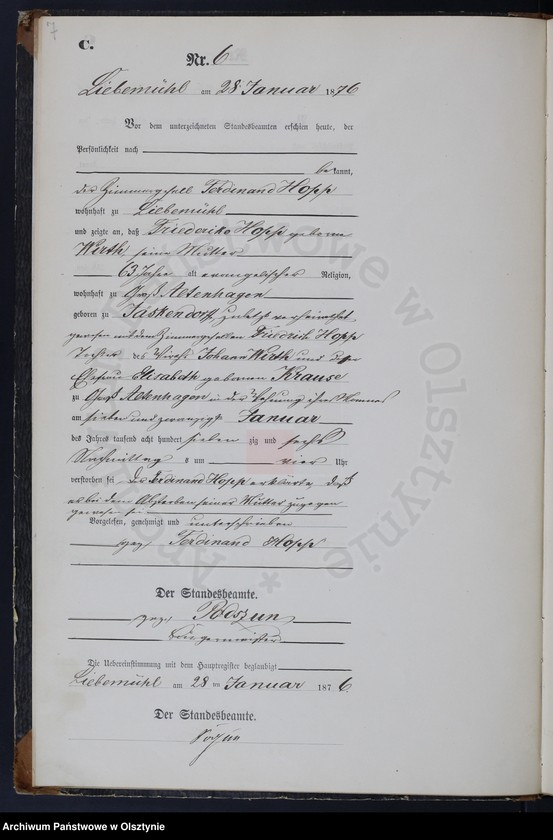 7
C.
Nr. 6
Liebemühl am 28 Januar 1876
Vor dem unterzeichneten Standesbeamten erschien heute, der
Persönlichkeit nach
bekannt,
der Zimmergesell Ferdinand Hopp
wohnhaft zu Liebemühl
und zeigte an, daß Friederike Hopp geborne
Wirth, seine Mutter
63 Jahre alt evangelischer Religion,
wohnhaft zu Groß Altenhagen
geboren zu Taskendorf, zuletzt verheirathet
gewesen mit dem Zimmergesellen Friedrich Hopp
Tochter des Wirth Johann Wirth und der
Ehefrau Elisabeth gebornen Krause
zu Groß Altenhagen in der Wohnung ihres Mannes
am sieben und zwanzigsten Januar
des Jahres tausend acht hundert siebenzig und sechs
Nachmittag s um vier Uhr
verstorben sei. Der Ferdinand Hopp erklärte, daß
er bei dem Absterben seiner Mutter zugegen
gewesen sei
Vorgelesen, genehmigt und unterschrieben
gez. Ferdinand Hopp
Der Standesbeamte.
gez.
Bürgermeister
Die Uebereinstimmung mit dem Hauptregister beglaubigt
Liebemühl am 28 ten Januar 1876
Der Standesbeamte.
Archiwum Państwowe w Olsztynie
Archiwum Państwowe w Olsztynie